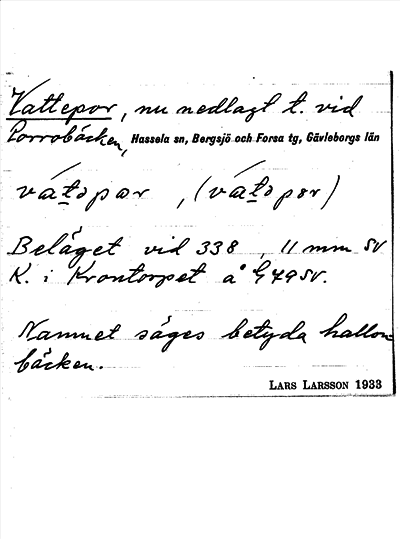 Vattepor, nu nedlagt t. vid
Porrobäcken, Hassela sn, Bergsjö och Forsa tg, Gävleborgs län
vátəpar, (vátəpər)
Beläget vid 338, 11 mm SV
K. i Krontorpet å G 49 SV.
Namnet säges betyda hallon-
bäcken.
LARS LARSSON 1933